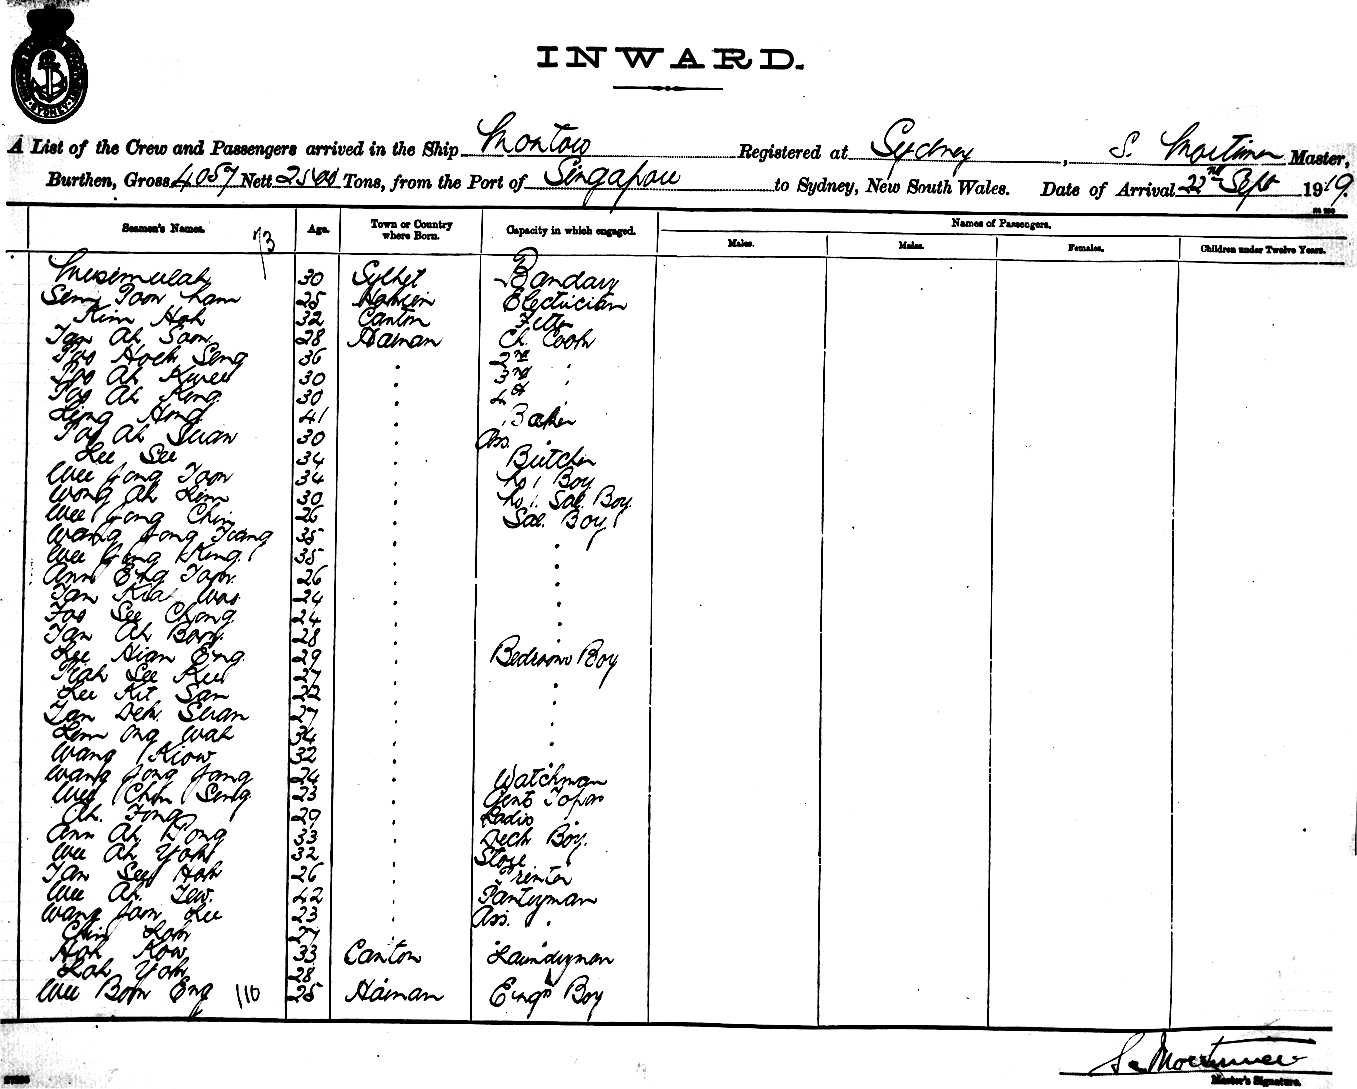 SYDNEY
INWARD.
A List of the Crew and Passengers arrived in the Ship Montoro Registered at Sydney, S. Mortimer Master,
Burthen, Gross 4057 Nett Tons, from the Port of Singapore to Sydney, New South Wales. Date of Arrival 22nd Sept 1919.
Seamen's Names. 73 Age. Town or Country where Born. Capacity in which engaged. Names of Passengers.
Males. Males. Females. Children under Twelve Years.
30 Sylhet Bandary
25 Electrician
Kim Hoh 32 Canton Fitter
Tan Ah Som 28 Hainan Ch. Cook
Foo Hock Seng 36 " 2nd "
Foo Ah Kwee 30 " 3rd "
Foo Ah King 30 " 4th "
Ling Hong 41 " Baker
Foo Ah Suan 30 " Ass. "
Lee See 34 " Butcher
Wee Gong Toon 34 " No 1 Boy
Wong Ah Lim 30 " No 1. Sal. Boy
Wee Gong Chin 26 " Sal. Boy
Wang Jong Tiang 35 " "
Wee Gong King 35 " "
Ann Eng Toon 26 " "
Tan Kia Was 24 " "
Foo See Chong 24 " "
Tan Ah Boon 28 " "
Lee Hian Eng 29 " Bedroom Boy
See Kee 27 " "
Lee Kit San 22 " "
Tan Deh Suan 27 " "
Lim Ong Wah 34 " "
Wang Kiow 32 " "
Wang Jong Jang 24 " Watchman
Wee Chin Seng 23 " Gents Topas
Ah. Fong 29 " Ladis "
Ann Ah Dong 33 " Deck Boy.
Wee Ah Yoh 32 " Store "
Tan See Hoh 26 " Printer
Wee Ah. Tew. 42 " Pantryman
Wang Jam Lee 23 " Ass. "
Chin Loh 27 " "
Hoh Kow 33 Canton Laundryman
Loh Yoh 28 " "
Wee Boon Eng 110 25 Hainan Engrs Boy
S. Mortimer
Master's Signature.